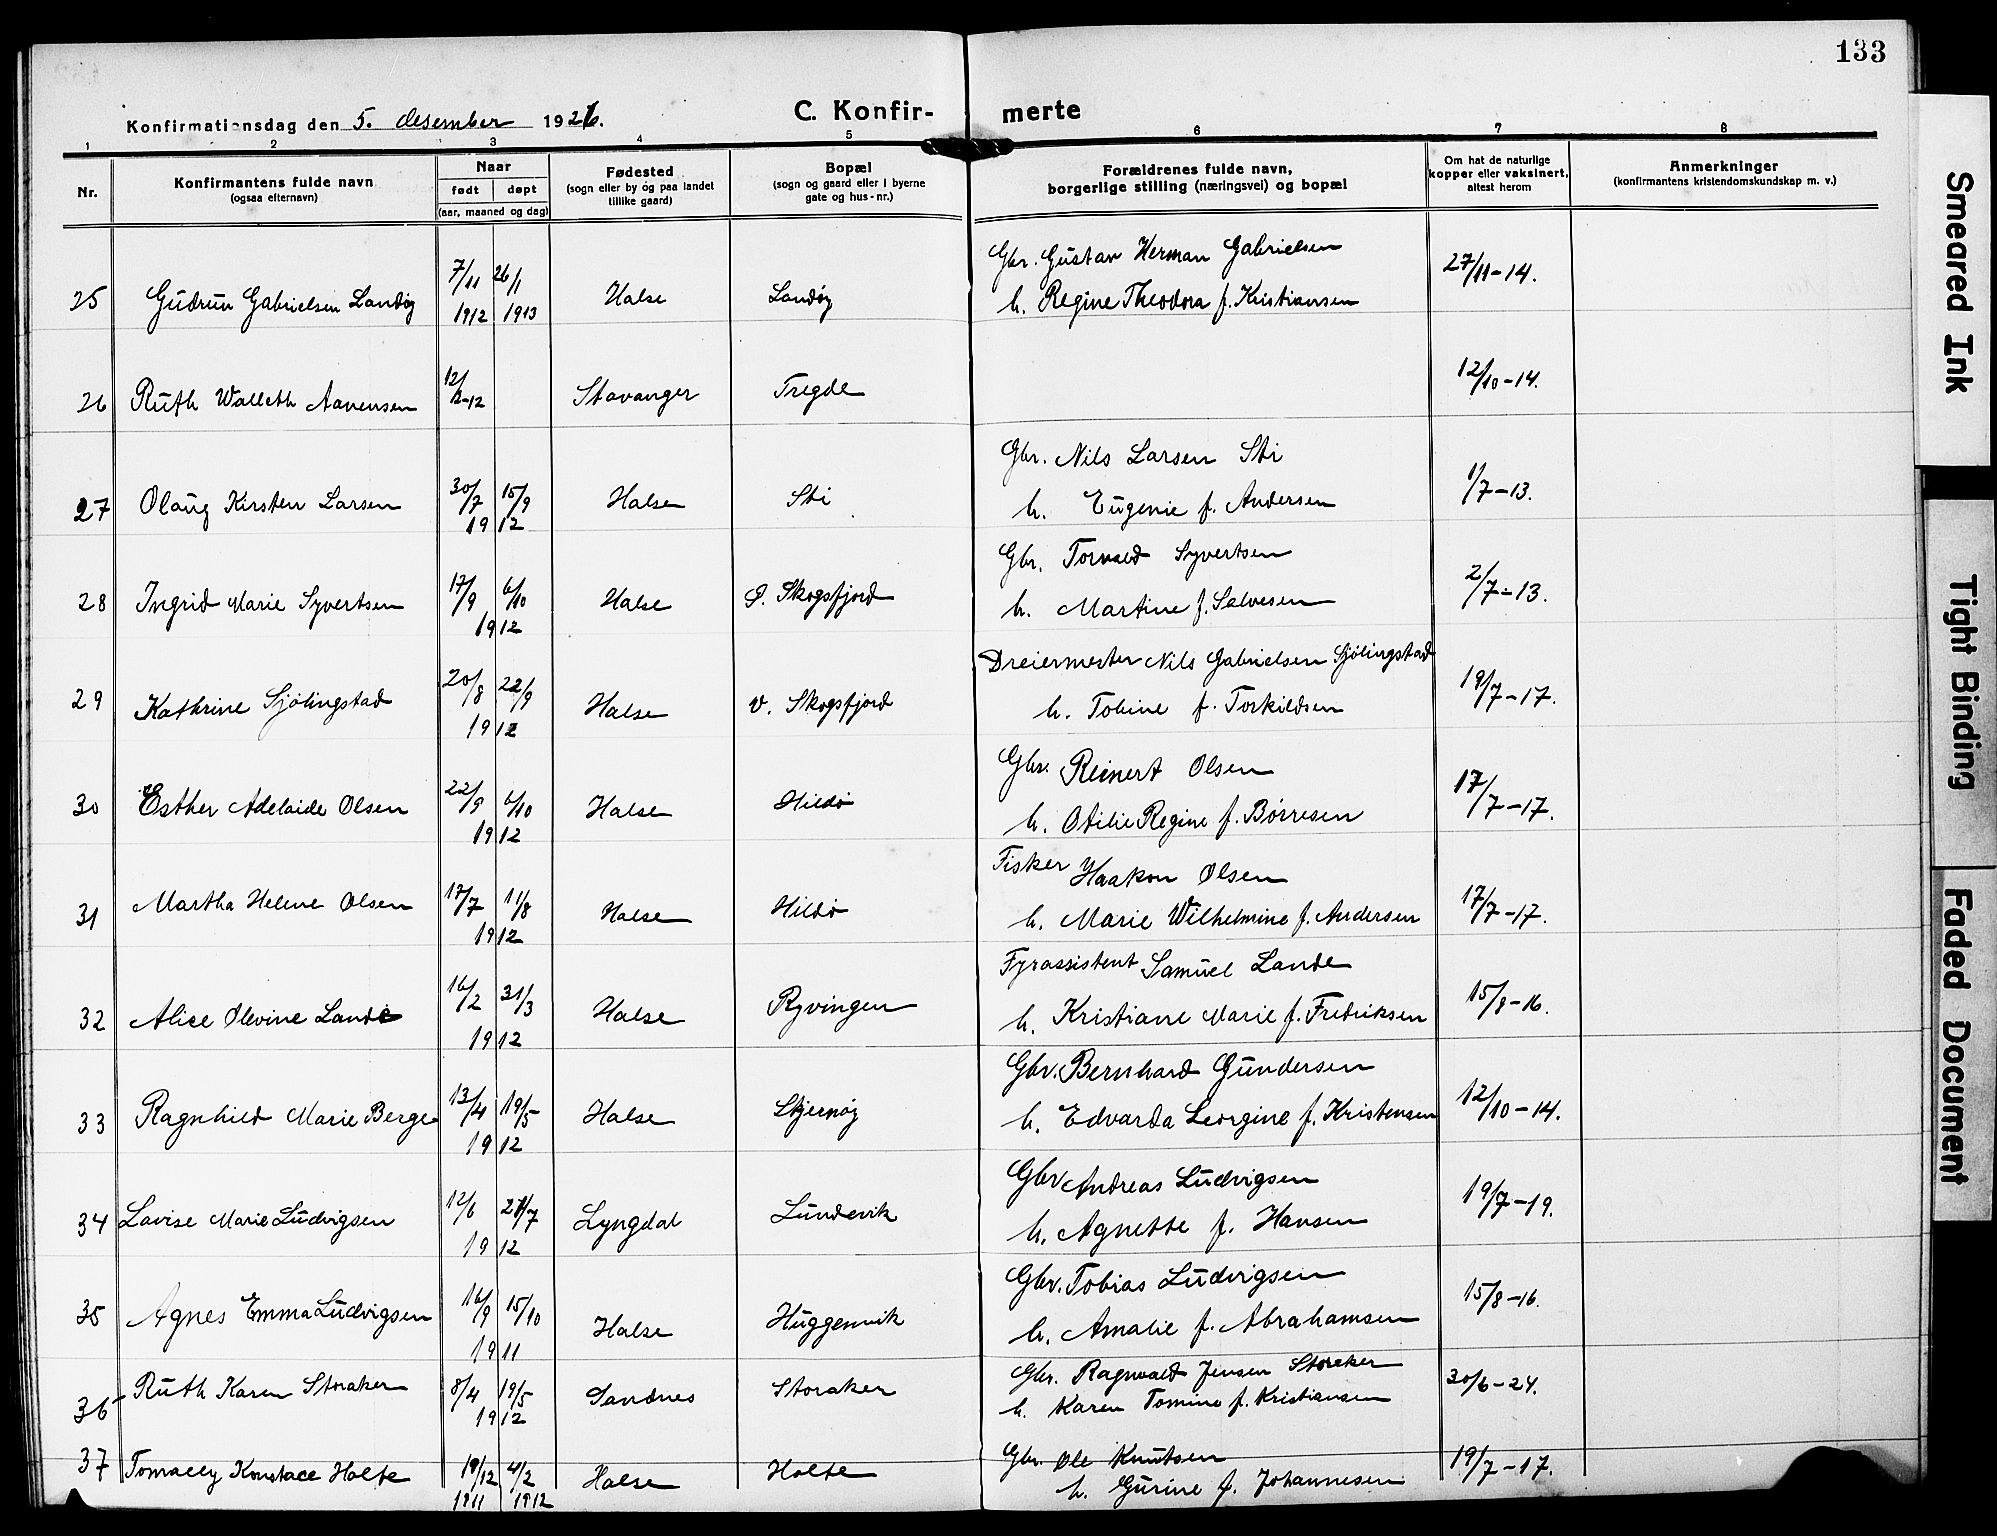 133
Konfirmationsdag den 5. desember 1926.
C. Konfir- merte
1 2 3 4 5 6 7 8
Nr.
Konfirmantens fulde navn
(ogsaa efternavn)
Naar
født døpt
(aar, maaned og dag)
Fødested
(sogn eller by og paa landet
tillike gaard)
Bopæl
(sogn og gaard eller i byerne
gate og hus-nr.)
Forældrenes fulde navn,
borgerlige stilling (næringsvei) og bopæl
Om hat de naturlige
kopper eller vaksinert,
attest herom
Anmerkninger
(konfirmantens kristendomskundskap m. v.)
Gbr. Gustav Herman Gabrielsen
25 Gudrun Gabrielsen Landøy 7/11 1912 26/1 1913 Halse Landøy h. Regine Theodora f. Kristiansen 27/11-14.
26 Ruth Walleth Aanensen 12/2-12 Stavanger Tregde 12/10-14.
Gbr. Nils Larsen Sti
27 Olaug Kirsten Larsen 30/7 15/9 1912 Halse Sti h. Eugenie f. Andersen 1/7-13.
Gbr. Torvald Syvertsen
28 Ingrid Marie Syvertsen 17/9 6/10 1912 Halse Ø. Skogsfjord h. Martine f. Salvesen 2/7-13.
Dreiermester Nils Gabrielsen Sjølingstad
29 Kathrine Sjølingstad 20/8 22/9 1912 Halse v. Skogsfjord h. Tobine f. Torkildsen 19/7-17.
Gbr. Reinert Olsen
30 Esther Adelaide Olsen 22/9 6/10 1912 Halse Hildø h. Otilie Regine f. Børresen 17/7-17.
Fisker Haakon Olsen
31 Martha Helene Olsen 17/7 11/8 1912 Halse Hildø h. Marie Wilhelmine f. Andersen 17/7-17.
Fyrassistent Samuel Lande
32 Alice Olevine Lande 16/2 31/3 1912 Halse Ryvingen h. Kristiane Marie f. Fredriksen 15/8-16.
Gbr. Bernhard Gundersen
33 Ragnhild Marie Berge 13/4 19/5 1912 Halse Skjernøy h. Edvarda Georgine f. Kristensen 12/10-14.
Gbr Andreas Ludvigsen
34 Lovise Marie Ludvigsen 12/6 21/7 1912 Lyngdal Lundevik h. Agnette f. Hansen 19/7-19.
Gbr. Tobias Ludvigsen
35 Agnes Emma Ludvigsen 16/9 15/10 1911 Halse Huggenvik h. Amalie f. Abrahamsen 15/8-16.
Gbr. Ragnvald Jensen Storaker
36 Ruth Karen Storaker 8/4 19/5 1912 Sandnes Storaker h. Karen Tomine f. Kristiansen 30/6-24.
Gbr. Ole Knutsen
37 Tomaccy Konstace Holte 19/12 1911 4/2 1912 Halse Holte h. Gurine f. Johannesen 19/7-17.
Smeared Ink
Tight Binding
Faded Document